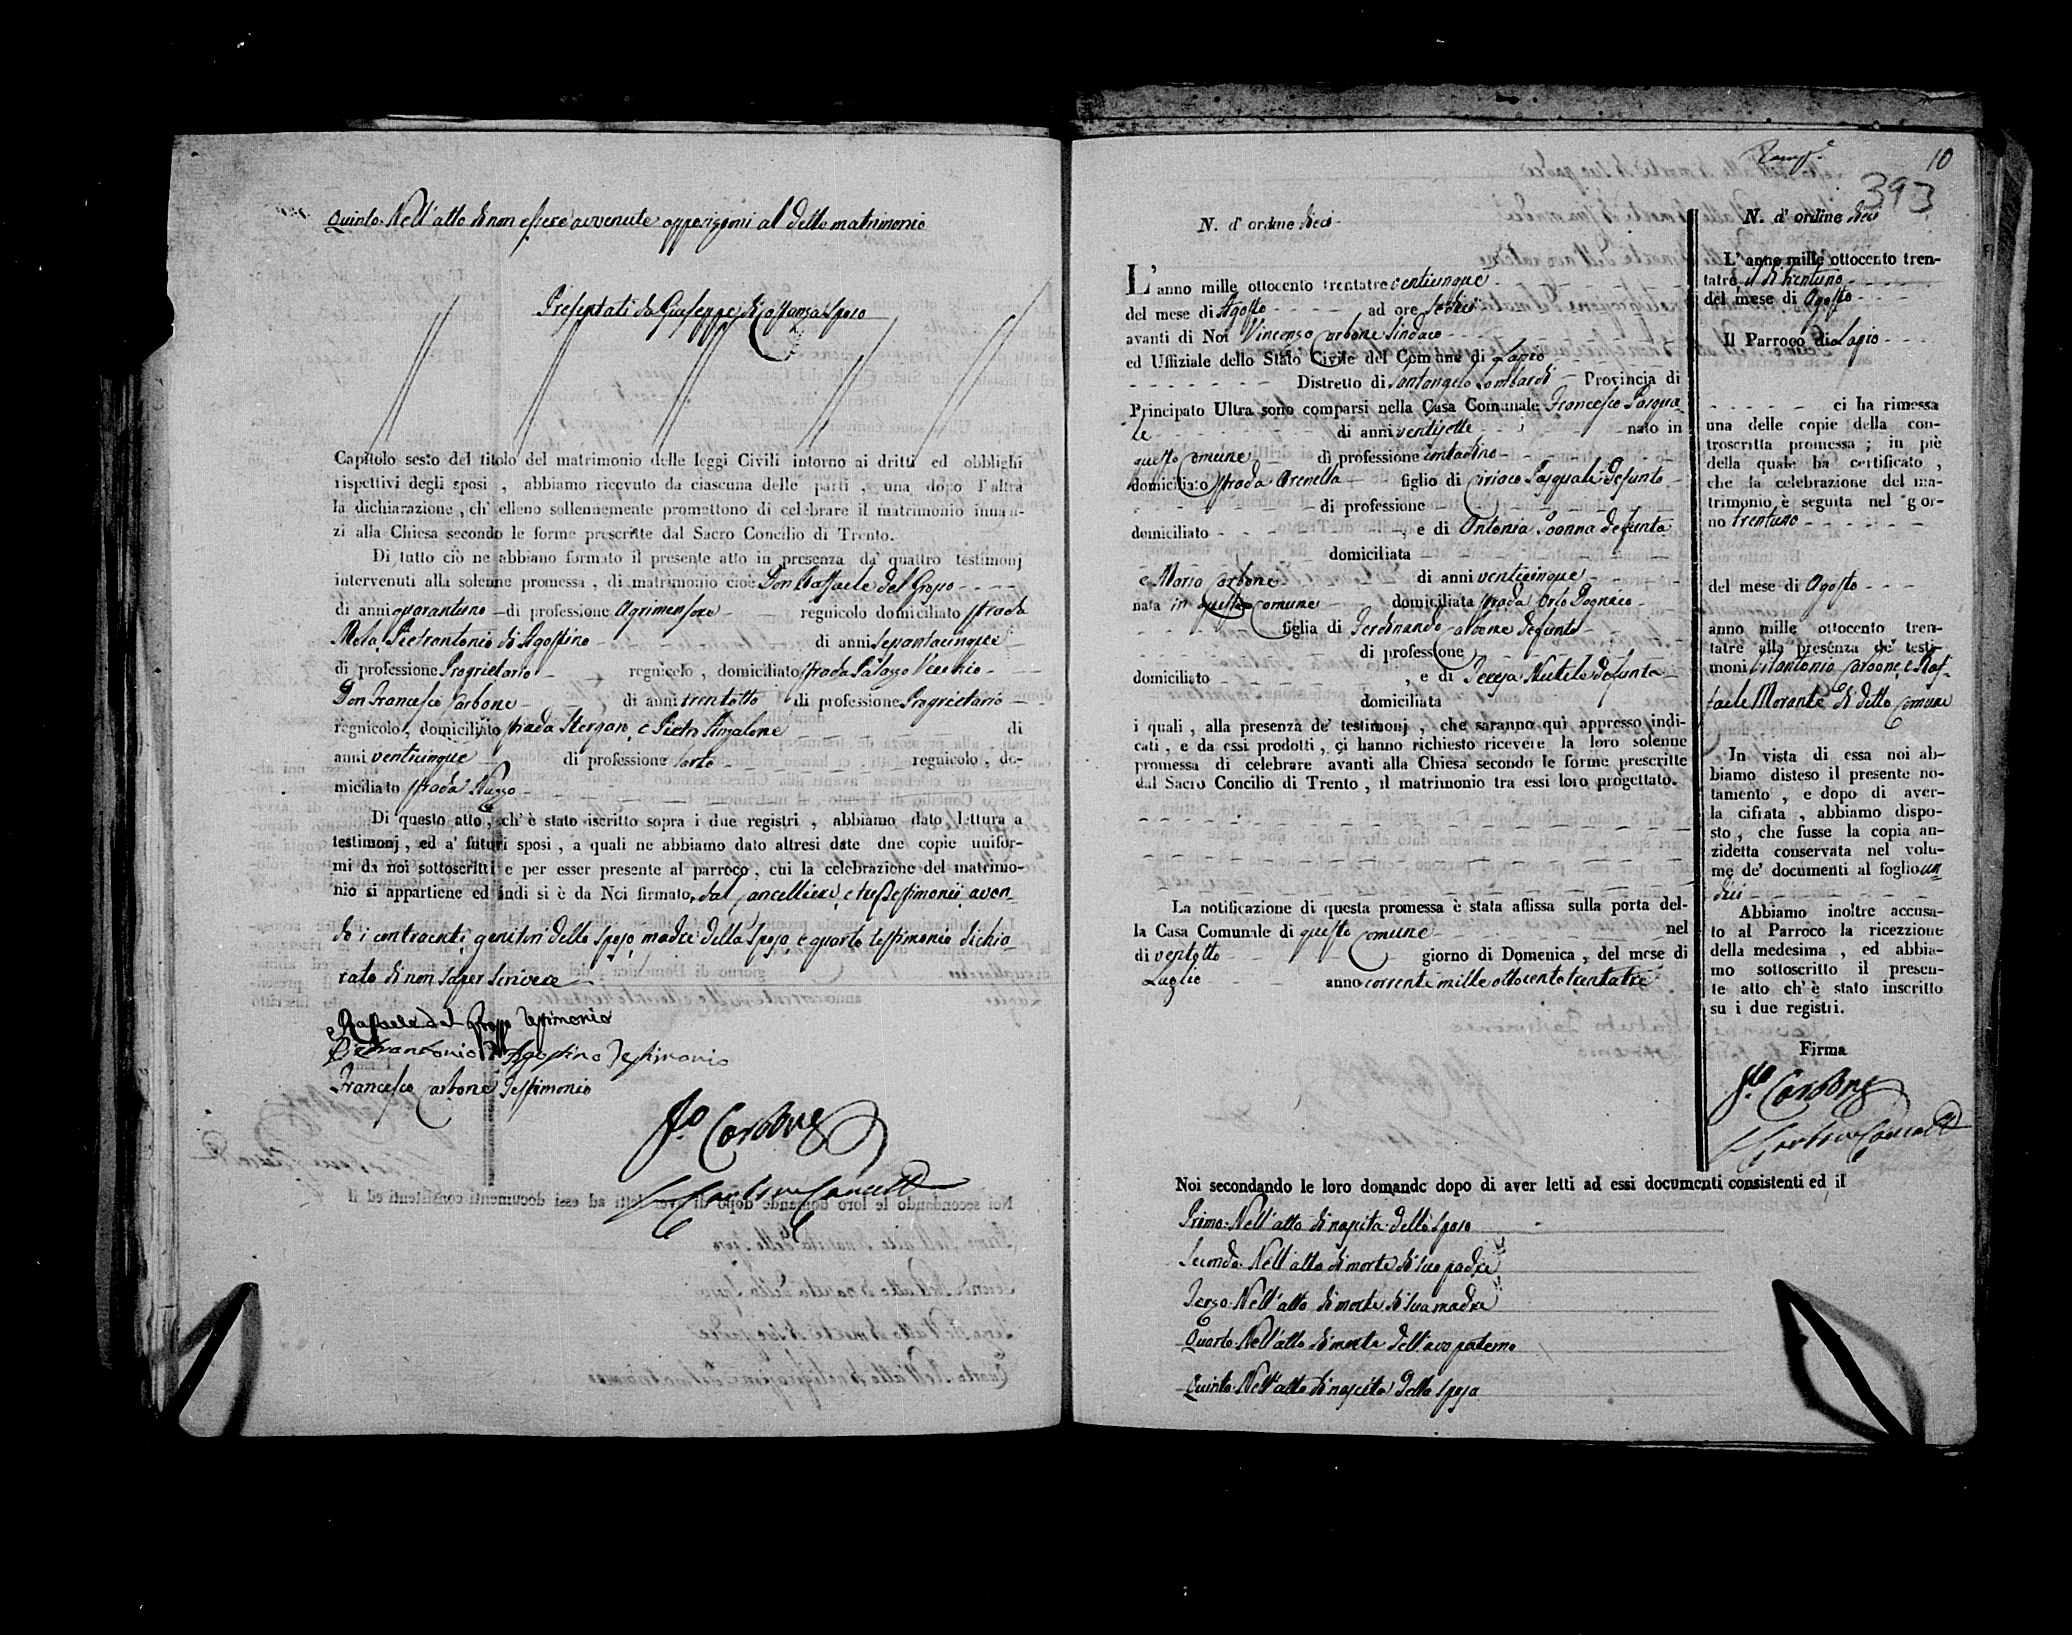 Quinto. Nell'atto di non essere avvenute opposizioni al detto matrimonio
Presentati da Giuseppe di Costanza sposo
Capitolo sesto del titolo del matrimonio delle leggi Civili intorno ai dritti ed obblighi
rispettivi degli sposi , abbiamo ricevuto da ciascuna delle parti , una dopo l'altra
la dichiarazione , ch' elleno sollennemente promettono di celebrare il matrimonio innan-
zi alla Chiesa secondo le forme prescritte dal Sacro Concilio di Trento.
Di tutto ciò ne abbiano formato il presente atto in presenza da' quattro testimonj
intervenuti alla solenne promessa , di matrimonio cioè Don Raffaele del Grosso
di anni quarantuno di professione Agrimensore regnicolo domiciliato strada
Mola, Pietrantonio di Agostino di anni sessantacinque
di professione Proprietario regnicolo , domiciliato strada Palazzo Vecchio
Don Francesco Carbone di anni trentotto di professione Proprietario
regnicolo , domiciliato strada e Pietro
di
anni venticinque di professione Sarto regnicolo , do-
miciliato strada
Di questo atto , ch' è stato iscritto sopra i due registri , abbiamo dato lettura a
testimonj , ed a' futuri sposi , a quali ne abbiamo dato altresi date due copie unifor-
mi da noi sottoscritti e per esser presente al parroco , cui la celebrazione del matrimo-
nio si appartiene ed indi si è da Noi firmato, dal Cancelliere, e tre testimonii aven-
do i contraenti, genitori dello sposo, madre della sposa, e quarto testimonio dichia-
rato di non saper scrivere
Raffaele del Grosso Testimonio
Pietrantonio di Agostino Testimonio
Francesco Carbone Testimonio
Carbone
10
393
N. d' ordine dieci
L'anno mille ottocento trentatre venticinque
del mese di Agosto ad ore sedici
avanti di Noi Vincenzo Carbone Sindaco
ed Uffiziale dello Stato Civile del Comune di Lapio
Distretto di Santangelo Lombardi Provincia di
Principato Ultra sono comparsi nella Casa Comunale Francesco Pasqua
le di anni ventisette nato in
questo Comune di professione contadino
domiciliato strada Arenella figlio di Ciriaco Pasquale defunto
di professione
domiciliato , e di Antonia defunta
domiciliata
e Maria Carbone di anni venticinque
nata in questo comune domiciliata strada Orto
figlia di Ferdinando Carbone defunto
di professione
domiciliato , e di Teresa defunta
domiciliata
i quali , alla presenza de' testimonj , che saranno qui appresso indi-
cati , e da essi prodotti , ci hanno richiesto ricevere la loro solenne
promessa di celebrare avanti alla Chiesa secondo le forme prescritte
dal Sacro Concilio di Trento , il matrimonio tra essi loro progettato.
La notificazione di questa promessa è stata affissa sulla porta del-
la Casa Comunale di questo Comune nel
di ventotto giorno di Domenica , del mese di
Luglio anno corrente mille ottocento trentatre
Noi secondando le loro domande dopo di aver letti ad essi documenti consistenti ed il
Primo. Nell'atto di nascita dello sposo
Secondo. Nell'atto di morte di suo padre
Terzo. Nell'atto di morte di sua madre
Quarto. Nell'atto di morte dell'avo paterno
Quinto. Nell'atto di nascita della sposa
N. d' ordine dieci
L' anno mille ottocento tren-
tatrè il dì trentuno
del mese di Agosto
Il Parroco di Lapio
ci ha rimessa
una delle copie della con-
troscritta promessa ; in piè
della quale ha certificato ,
che la celebrazione del ma-
trimonio è seguita nel gior-
no trentuno
del mese di Agosto
anno mille ottocento tren-
tatre alla presenza de' testi-
moni Vitantonio Carbone, e Raf-
faele Morante di detto Comune
In vista di essa noi ab-
biamo disteso il presente no-
tamento , e dopo di aver-
la cifrata , abbiamo dispo-
sto , che fusse la copia an-
zidetta conservata nel volu-
me de' documenti al foglio un-
dici
Abbiamo inoltre accusa-
to al Parroco la ricezzione
della medesima , ed abbia-
mo sottoscritto il presen-
te atto ch' è stato inscritto
su i due registri.
Firma
Carbone